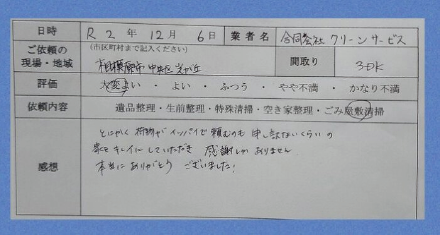 日時 R2年12月6日 業者名 合同会社クリーンサービス
ご依頼の現場・地域 (市区町村まで記入ください) 相模原市中央区光が丘 間取り 3DK
評価 大変よい ・ よい ・ ふつう ・ やや不満 ・ かなり不満
依頼内容 遺品整理・生前整理・特殊清掃・空き家整理・ごみ屋敷清掃
感想
とにかく荷物がイッパイで頼むのも申し訳ないくらいの
家をキレイにしていただき 感謝しかありません
本当にありがとうございました!